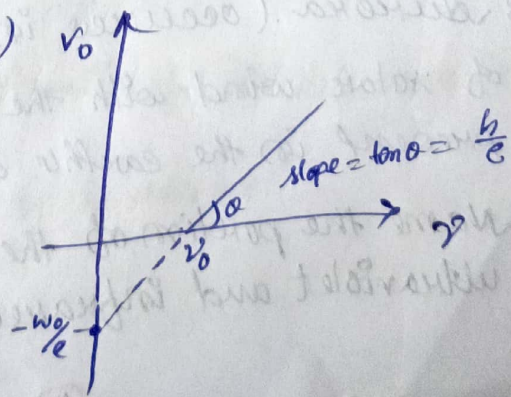 )
V₀
slope = tanθ = h/e
θ
ν
ν₀
-W₀/e